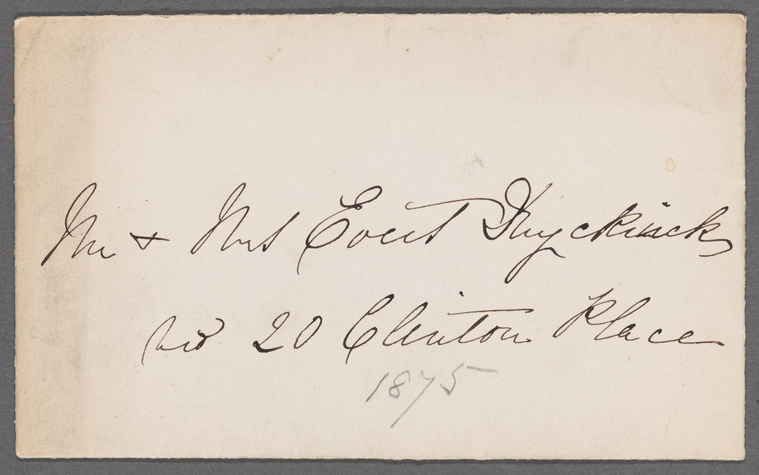 Mr + Mrs Evert Duyckinck
No 20 Clinton Place
1875